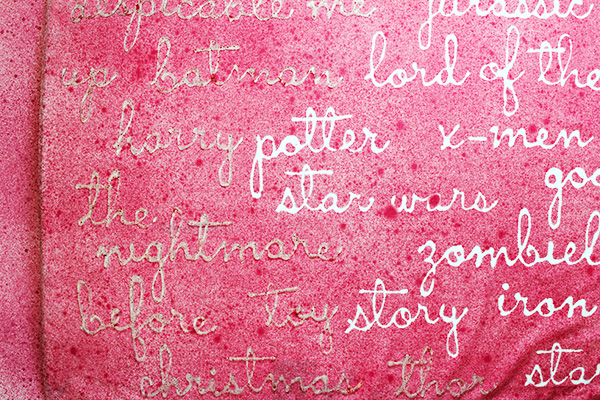 despicable me jurassic
up batman lord of the
harry potter x-men
star wars goo
the
nightmare zombiel
before toy story iron
christmas thor star